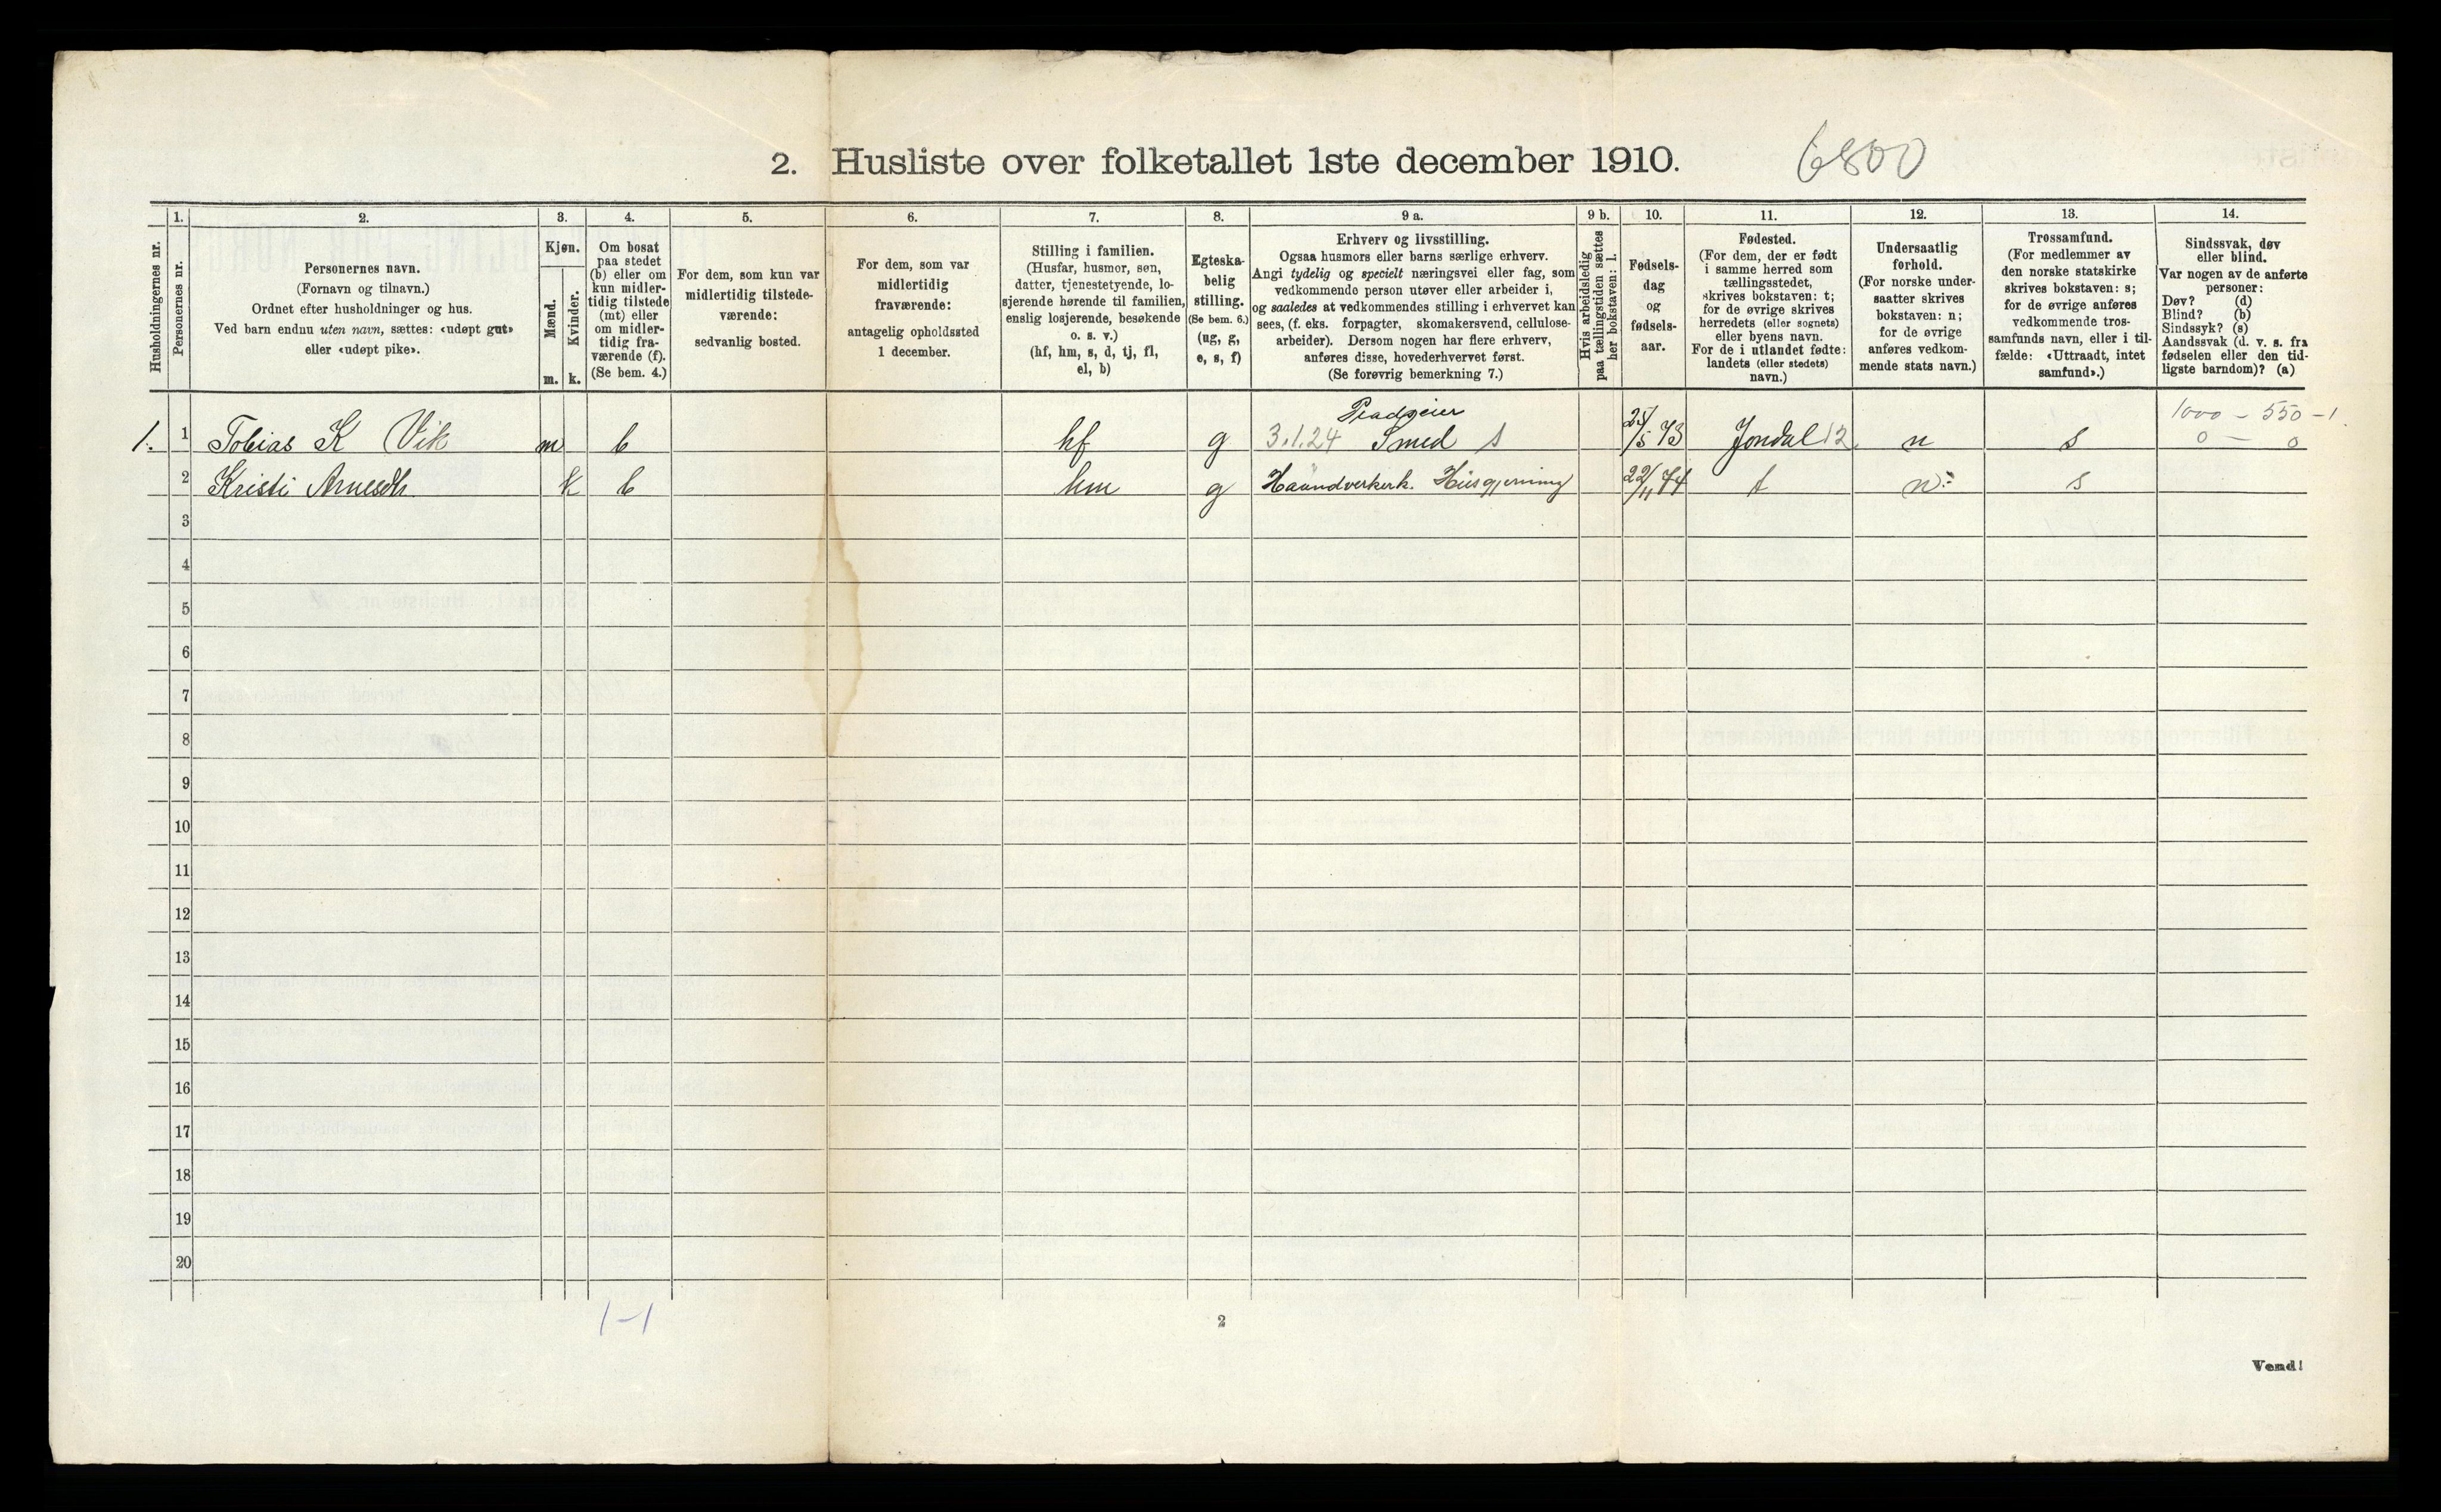 6800
2. Husliste over folketallet 1ste december 1910.
Husholdningernes nr.
1.
Personernes nr.
2.
Personernes navn.
(Fornavn og tilnavn.)
Ordnet efter husholdninger og hus.
Ved barn endnu uten navn, sættes: «udøpt gut»
eller «udøpt pike».
3.
Kjøn.
Mænd.
Kvinder.
m.
k.
4.
Om bosat
paa stedet
(b) eller om
kun midler-
tidig tilstede
(mt) eller
om midler-
tidig fra-
værende (f).
(Se bem. 4.)
5.
For dem, som kun var
midlertidig tilstede-
værende:
sedvanlig bosted.
6.
For dem, som var
midlertidig
fraværende:
antagelig opholdssted
1 december.
7.
Stilling i familien.
(Husfar, husmor, søn,
datter, tjenestetyende, lo-
sjerende hørende til familien,
enslig losjerende, besøkende
o. s. v.)
(hf, hm, s, d, tj, fl,
el, b)
8.
Egteska-
belig
stilling.
(Se bem. 6.)
(ug, g,
e, s, f)
9 a.
Erhverv og livsstilling.
Ogsaa husmors eller barns særlige erhverv.
Angi tydelig og specielt næringsvei eller fag, som
vedkommende person utøver eller arbeider i,
og saaledes at vedkommendes stilling i erhvervet kan
sees, (f. eks. forpagter, skomakersvend, cellulose-
arbeider). Dersom nogen har flere erhverv,
anføres disse, hovederhvervet først.
(Se forøvrig bemerkning 7.)
9 b.
Hvis arbeidsledig
paa tællingstiden sættes
her bokstaven: l.
10.
Fødsels-
dag
og
fødsels-
aar.
11.
Fødested.
(For dem, der er født
i samme herred som
tællingsstedet,
skrives bokstaven: t;
for de øvrige skrives
herredets (eller sognets)
eller byens navn.
For de i utlandet fødte:
landets (eller stedets)
navn.)
12.
Undersaatlig
forhold.
(For norske under-
saatter skrives
bokstaven: n;
for de øvrige
anføres vedkom-
mende stats navn.)
13.
Trossamfund.
(For medlemmer av
den norske statskirke
skrives bokstaven: s;
for de øvrige anføres
vedkommende tros-
samfunds navn, eller i til-
fælde: «Uttraadt, intet
samfund».)
14.
Sindssvak, døv
eller blind.
Var nogen av de anførte
personer:
Døv? (d)
Blind? (b)
Sindssyk? (s)
Aandssvak (d. v. s. fra
fødselen eller den tid-
ligste barndom)? (a)
1000 - 550 - 1
1. 1 Tobias K Vik m b hf g 3.1.24 Smed s 25/5 73 Jondal 12 n s 0 - 0
2 Kristi Arnesdtr k b hm g Haandverkerk. Husgjerning 22/11 74 t n s
3
4
5
6
7
8
9
10
11
12
13
14
15
16
17
18
19
20
1-1
2
Vend!